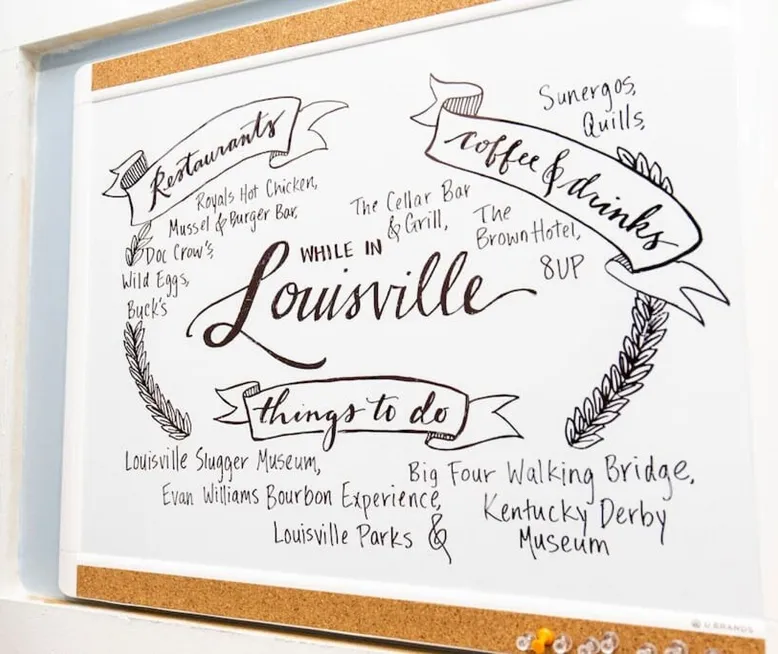 Restaurants
Royals Hot Chicken,
Mussel & Burger Bar,
Doc Crow's,
Wild Eggs,
Buck's
coffee & drinks
Sunergos,
Quills,
The Cellar Bar
& Grill,
The
Brown Hotel,
8UP
WHILE IN
Louisville
things to do
Louisville Slugger Museum,
Evan Williams Bourbon Experience,
Louisville Parks &
Big Four Walking Bridge,
Kentucky Derby
Museum
U BRANDS